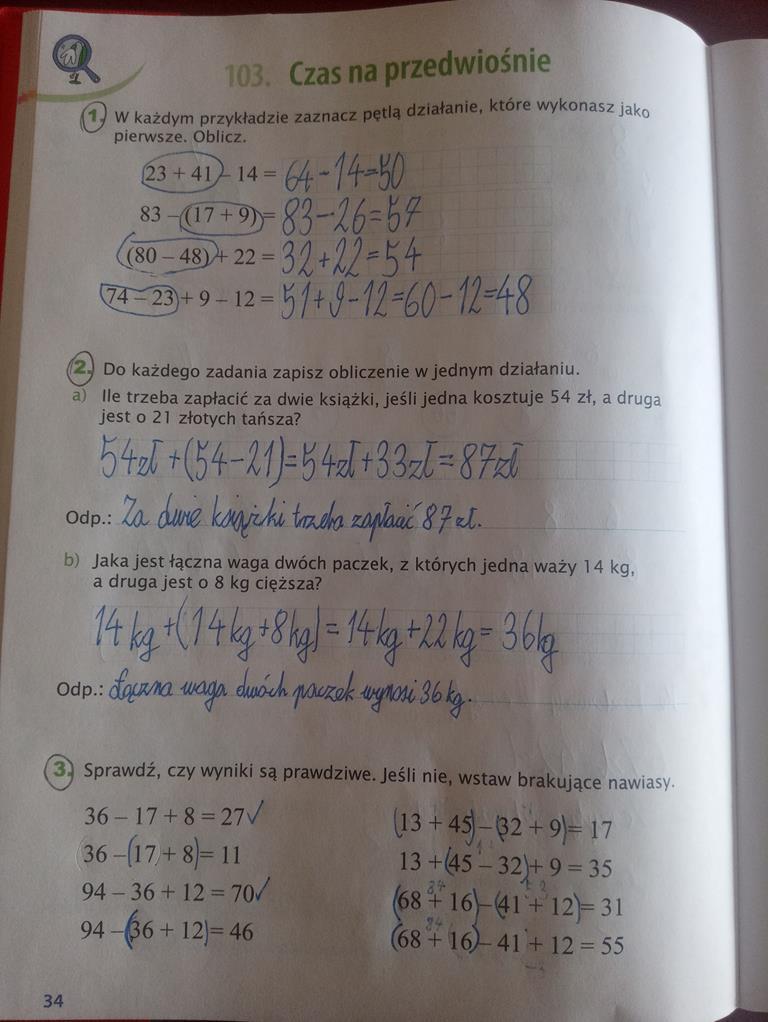 103. Czas na przedwiośnie
1. W każdym przykładzie zaznacz pętlą działanie, które wykonasz jako
pierwsze. Oblicz.
23 + 41 – 14 = 64-14=50
83 – (17 + 9) = 83-26=57
(80 – 48) + 22 = 32+22=54
74 – 23 + 9 – 12 = 51+9-12=60-12=48
2. Do każdego zadania zapisz obliczenie w jednym działaniu.
a) Ile trzeba zapłacić za dwie książki, jeśli jedna kosztuje 54 zł, a druga
jest o 21 złotych tańsza?
54zł+(54-21)=54zł+33zł=87zł
Odp.: Za dwie książki trzeba zapłacić 87 zł.
b) Jaka jest łączna waga dwóch paczek, z których jedna waży 14 kg,
a druga jest o 8 kg cięższa?
14 kg+(14kg+8kg)=14kg+22kg=36kg
Odp.: Łączna waga dwóch paczek wynosi 36 kg.
3. Sprawdź, czy wyniki są prawdziwe. Jeśli nie, wstaw brakujące nawiasy.
36 – 17 + 8 = 27 ✓
36 – (17 + 8) = 11
94 – 36 + 12 = 70 ✓
94 – (36 + 12) = 46
(13 + 45) – (32 + 9) = 17
13 + (45 – 32) + 9 = 35
(68 + 16) – (41 + 12) = 31
(68 + 16) – 41 + 12 = 55
34